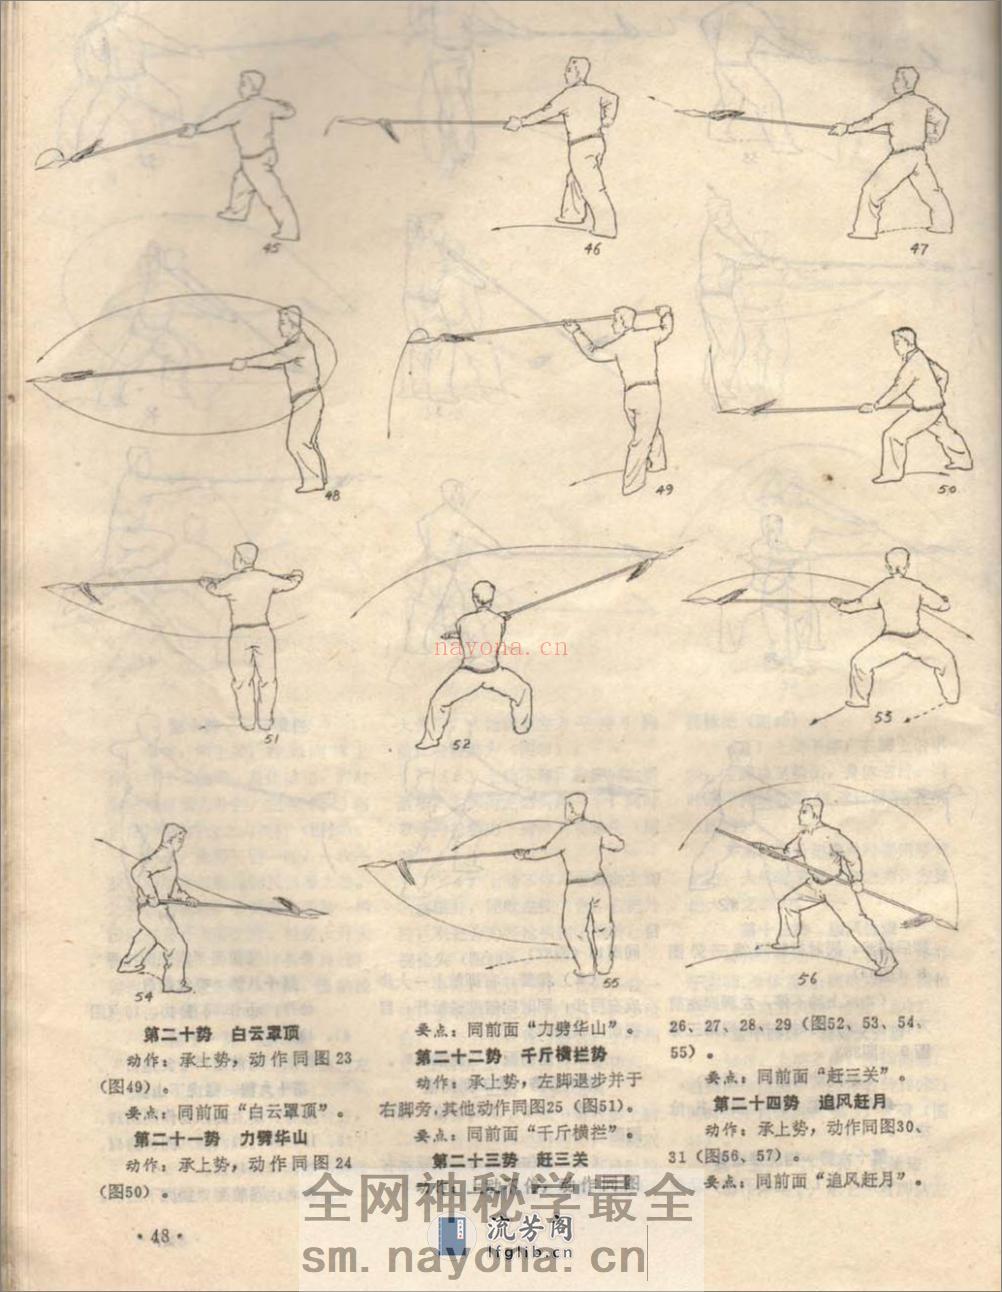 45
46
47
48
49
50
51
52
53
54
55
56
nayona.cn
第二十势 白云罩顶
动作：承上势，动作同图23
（图49）。
要点：同前面“白云罩顶”。
第二十一势 力劈华山
动作：承上势，动作同图24
（图50）。
要点：同前面“力劈华山”。
第二十二势 千斤横拦势
动作：承上势，左脚退步并于
右脚旁，其他动作同图25（图51）。
要点：同前面“千斤横拦”。
第二十三势 赶三关
动作同图
26、27、28、29（图52、53、54、
55）。
要点：同前面“赶三关”。
第二十四势 追风赶月
动作：承上势，动作同图30、
31（图56、57）。
要点：同前面“追风赶月”。
·48·
全网神秘学最全
流芳阁
lfglib.cn
sm.nayona.cn